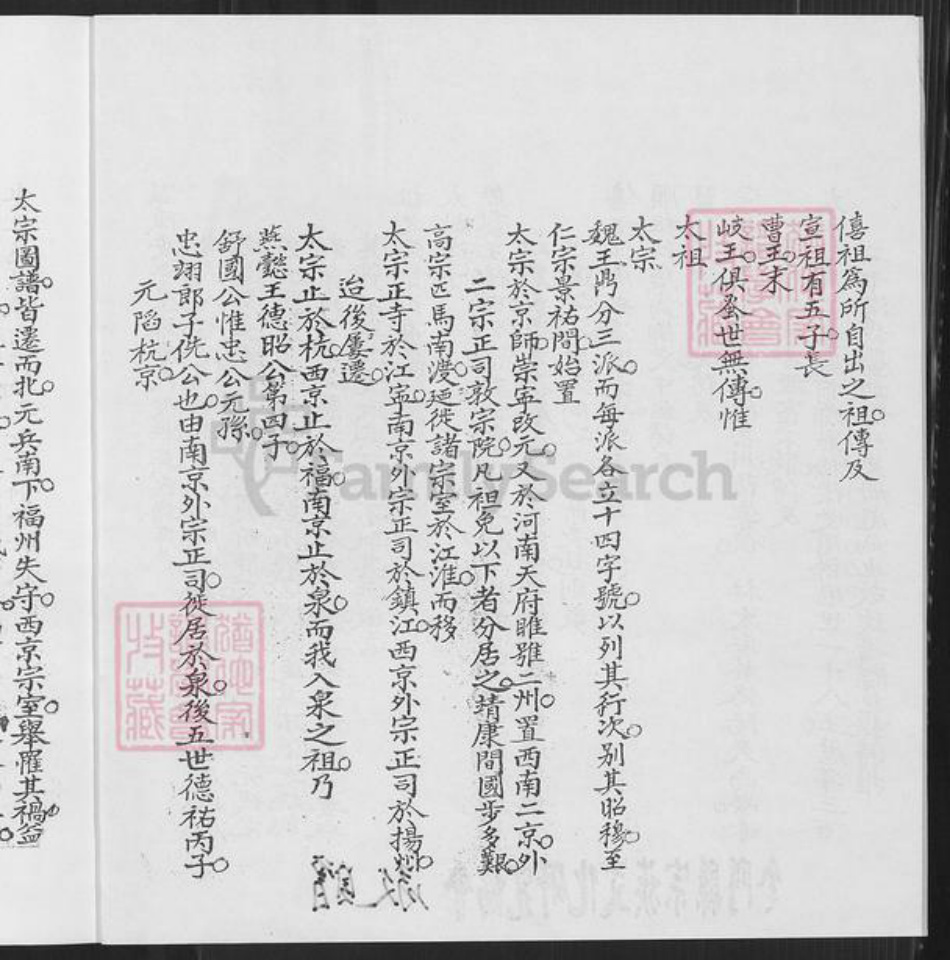 僖祖為所自出之祖。傳及
宣祖有五子。長
曹王。末
岐王。俱蚤世無傳。惟
太祖
太宗
魏王鼎分三派。而每派各立十四字號。以列其行次。別其昭穆。至
仁宗景祐間。始置
太宗於京師。崇寧改元。又於河南天府雎雖二州。置西南二京。外
二宗正司敦宗院。凡袒免以下者分居之。靖康間國步多艱。
高宗匹馬南渡。廼徙諸宗室於江淮。而移
太宗正寺於江寧。南京外宗正司於鎮江。西京外宗正司於揚州。
迨後屢遷。
太宗止於杭。西京止於福。南京止於泉。而我入泉之祖。乃
燕懿王德昭公第四子。
舒國公惟忠公元孫。
忠翊郎子侁公也。由南京外宗正司。徙居於泉。後五世德祐丙子。
元陷杭京。
太宗圖譜。皆遷而北。元兵南下。福州失守。西京宗室。舉罹其禍。益
FamilySearch